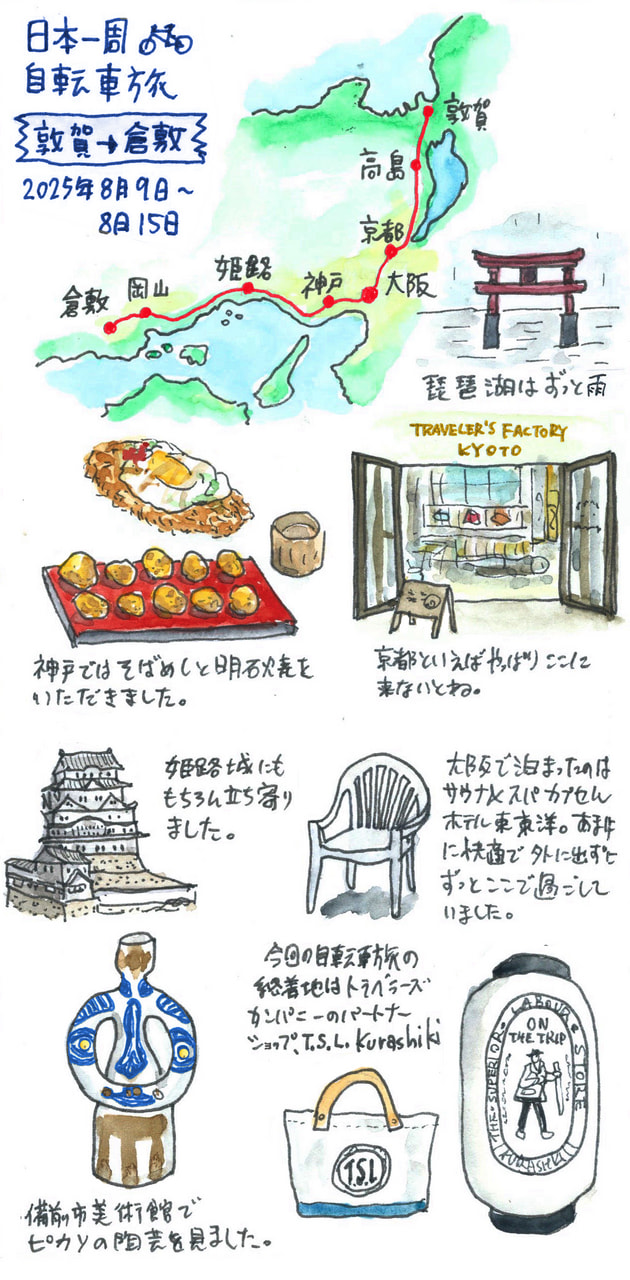 日本一周
自転車旅
敦賀→倉敷
2025年8月9日〜
8日15日
敦賀
高島
京都
大阪
神戸
姫路
岡山
倉敷
琵琶湖はずっと雨
TRAVELER'S FACTORY
KYOTO
神戸ではそばめしと明石焼を
いただきました。
京都といえばやっぱりここに
来ないとね。
姫路城にも
もちろん立ち寄り
ました。
大阪で泊まったのは
サウナ&スパ カプセル
ホテル東東洋。あまり
に快適で外に出ずに
ずっとここで過ごして
いました。
備前市美術館で
ピカソの陶芸を見ました。
今回の自転車旅の
終着地はトラベラーズ
カンパニーのパートナー
ショップ、T.S.L. Kurashiki
T.S.L
THE SUPERIOR LABOUR STORE
ON
THE TRIP
KURASHIKI